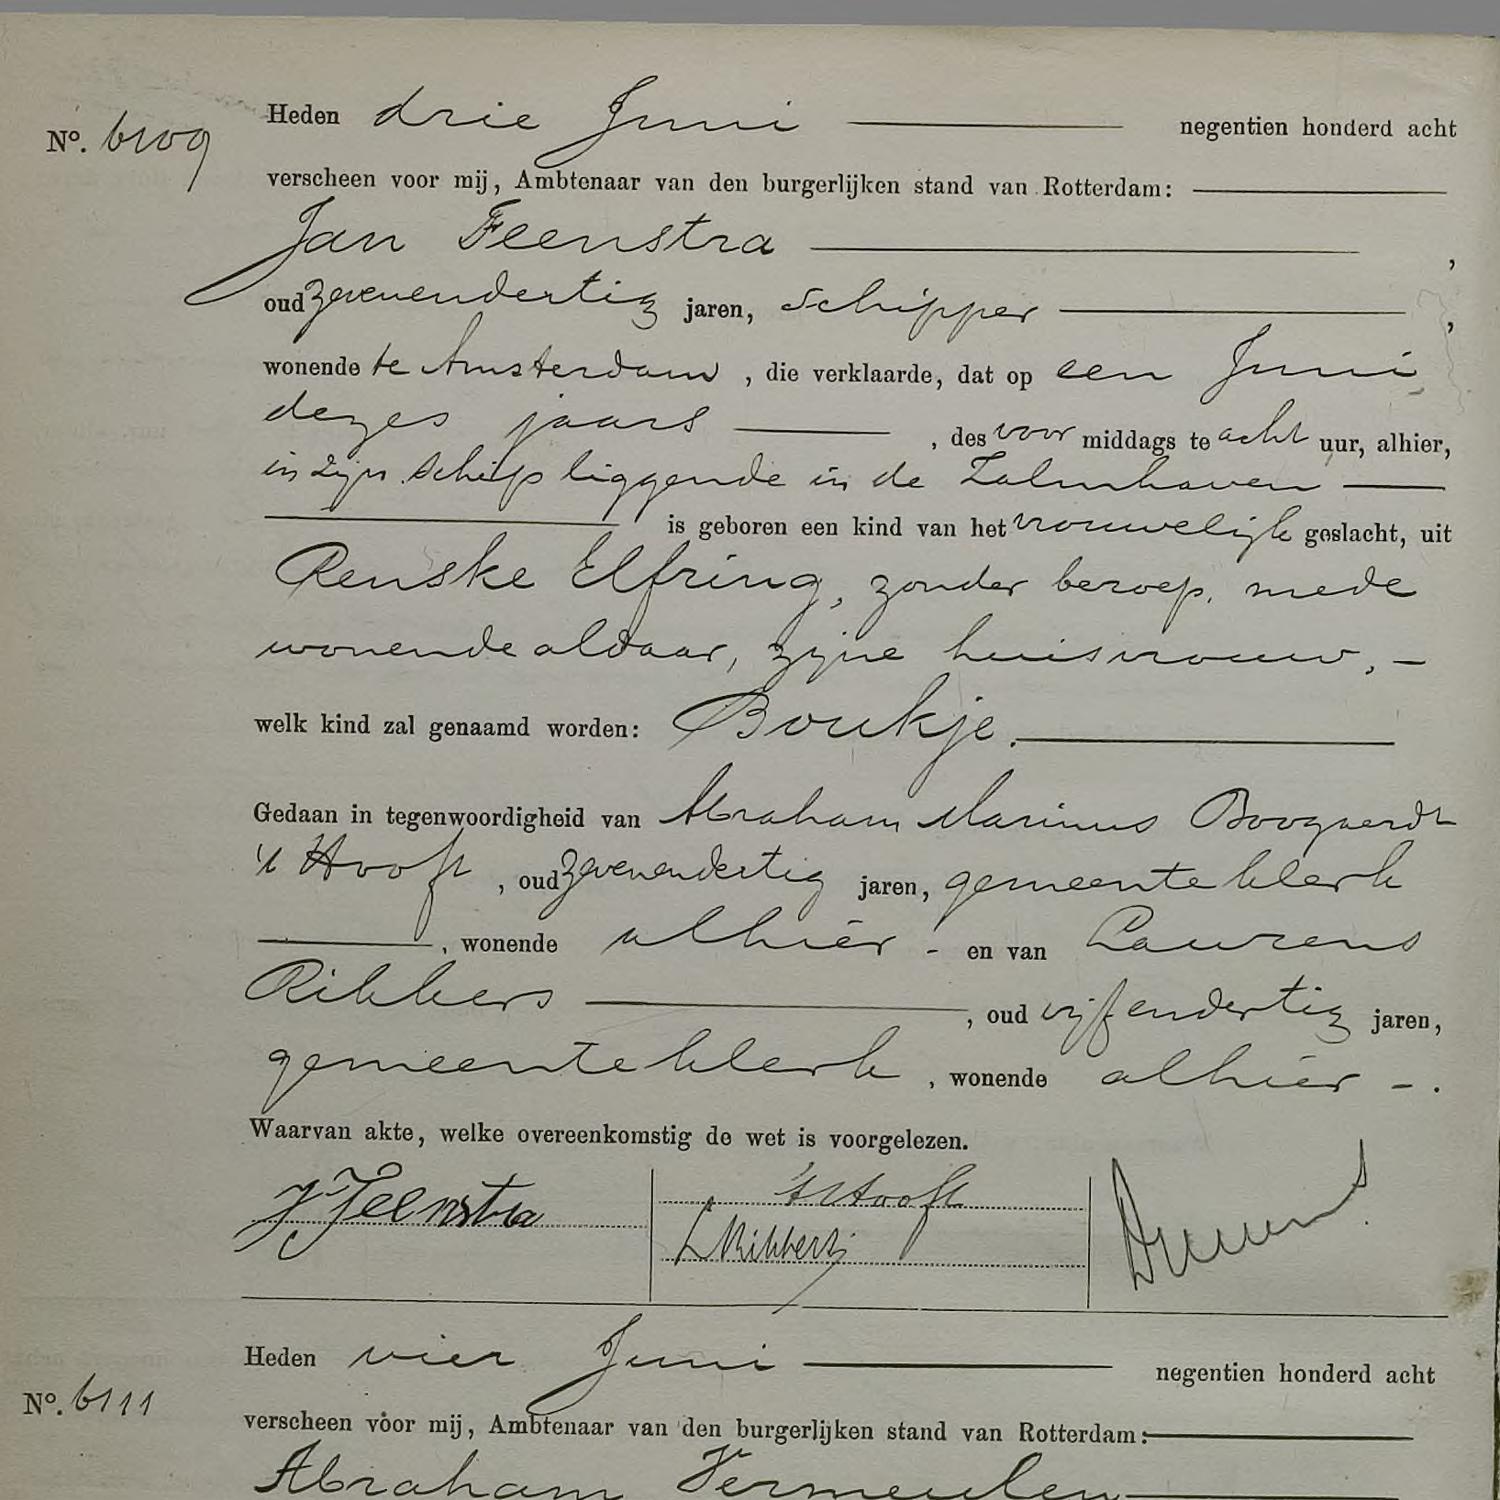 Heden drie Juni negentien honderd acht
No. 6109
verscheen voor mij, Ambtenaar van den burgerlijken stand van Rotterdam:
Jan Feenstra ,
oud zevenendertig jaren, schipper ,
wonende te Amsterdam , die verklaarde, dat op een Juni
dezes jaars , des voor middags te acht uur, alhier,
in zijn schip liggende in de Zalmhaven
is geboren een kind van het vrouwelijk geslacht, uit
Renske Elfring, zonder beroep, mede
wonende aldaar, zijne huisvrouw, -
welk kind zal genaamd worden: Boukje.
Gedaan in tegenwoordigheid van Abraham Marinus Boogaerdt
't Hooft , oud zevenendertig jaren, gemeenteklerk
, wonende alhier - en van Laurens
Ribbers , oud vijfendertig jaren,
gemeenteklerk , wonende alhier - .
Waarvan akte, welke overeenkomstig de wet is voorgelezen.
J Feenstra
't Hooft
L Ribbers
Heden vier Juni negentien honderd acht
No. 6111
verscheen voor mij, Ambtenaar van den burgerlijken stand van Rotterdam:
Abraham Vermeulen